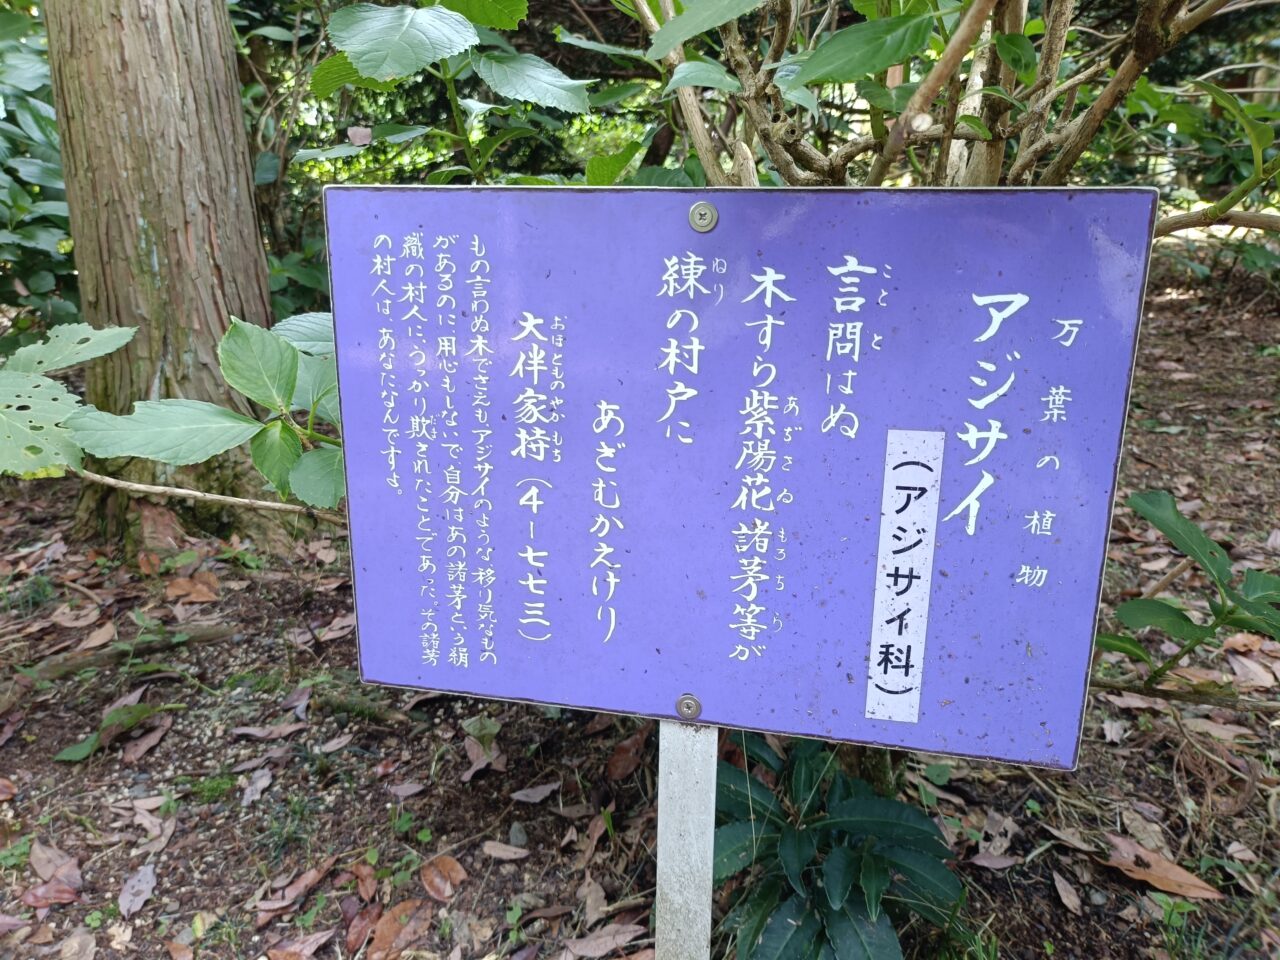 万葉の植物
アジサイ
（アジサイ科）
言問はぬ
こと と
木すら紫陽花諸茅等が
あぢさゐ もろちら
練の村戸に
ねり
あざむかえけり
大伴家持（４－七七三）
おほとものやかもち
もの言わぬ木でさえもアジサイのような移り気なもの
があるのに、用心もしないで、自分はあの諸茅という絹
織の村人に、うっかり欺されたことであった。その諸茅
だま
の村人は、あなたなんですよ。